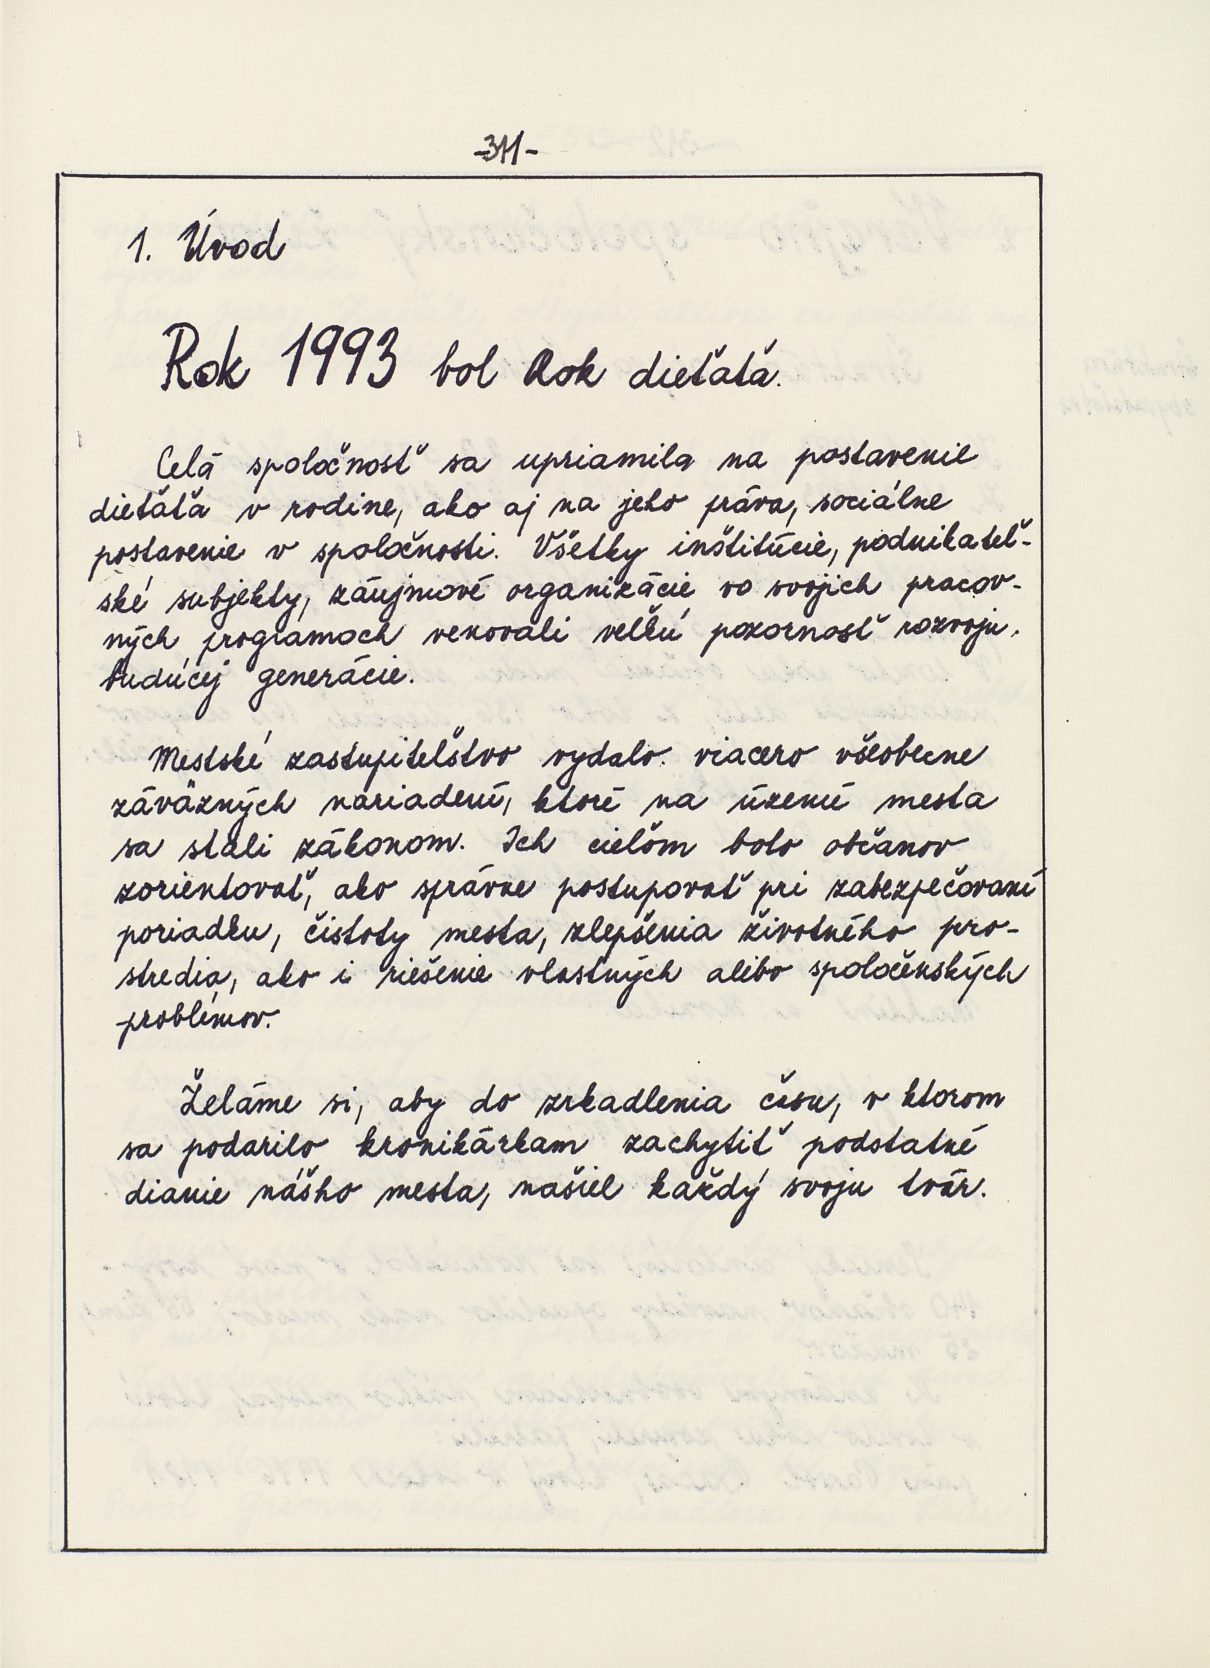 -311-
1. Úvod
Rok 1993 bol Rok dieťaťa.
Celá spoločnosť sa upriamila na postavenie
dieťaťa v rodine, ako aj na jeho práva, sociálne
postavenie v spoločnosti. Všetky inštitúcie, podnikateľ-
ské subjekty, záujmové organizácie vo svojich pracov-
ných programoch venovali veľkú pozornosť rozvoju
budúcej generácie.
Mestské zastupiteľstvo vydalo viacero všeobecne
záväzných nariadení, ktoré na území mesta
sa stali zákonom. Ich cieľom bolo občanov
zorientovať, ako správne postupovať pri zabezpečovaní
poriadku, čistoty mesta, zlepšenia životného pro-
stredia, ako i riešenie vlastných alebo spoločenských
problémov.
Želáme si, aby do zrkadlenia času, v ktorom
sa podarilo kronikárkam zachytiť podstatné
dianie nášho mesta, našiel každý svoju tvár.